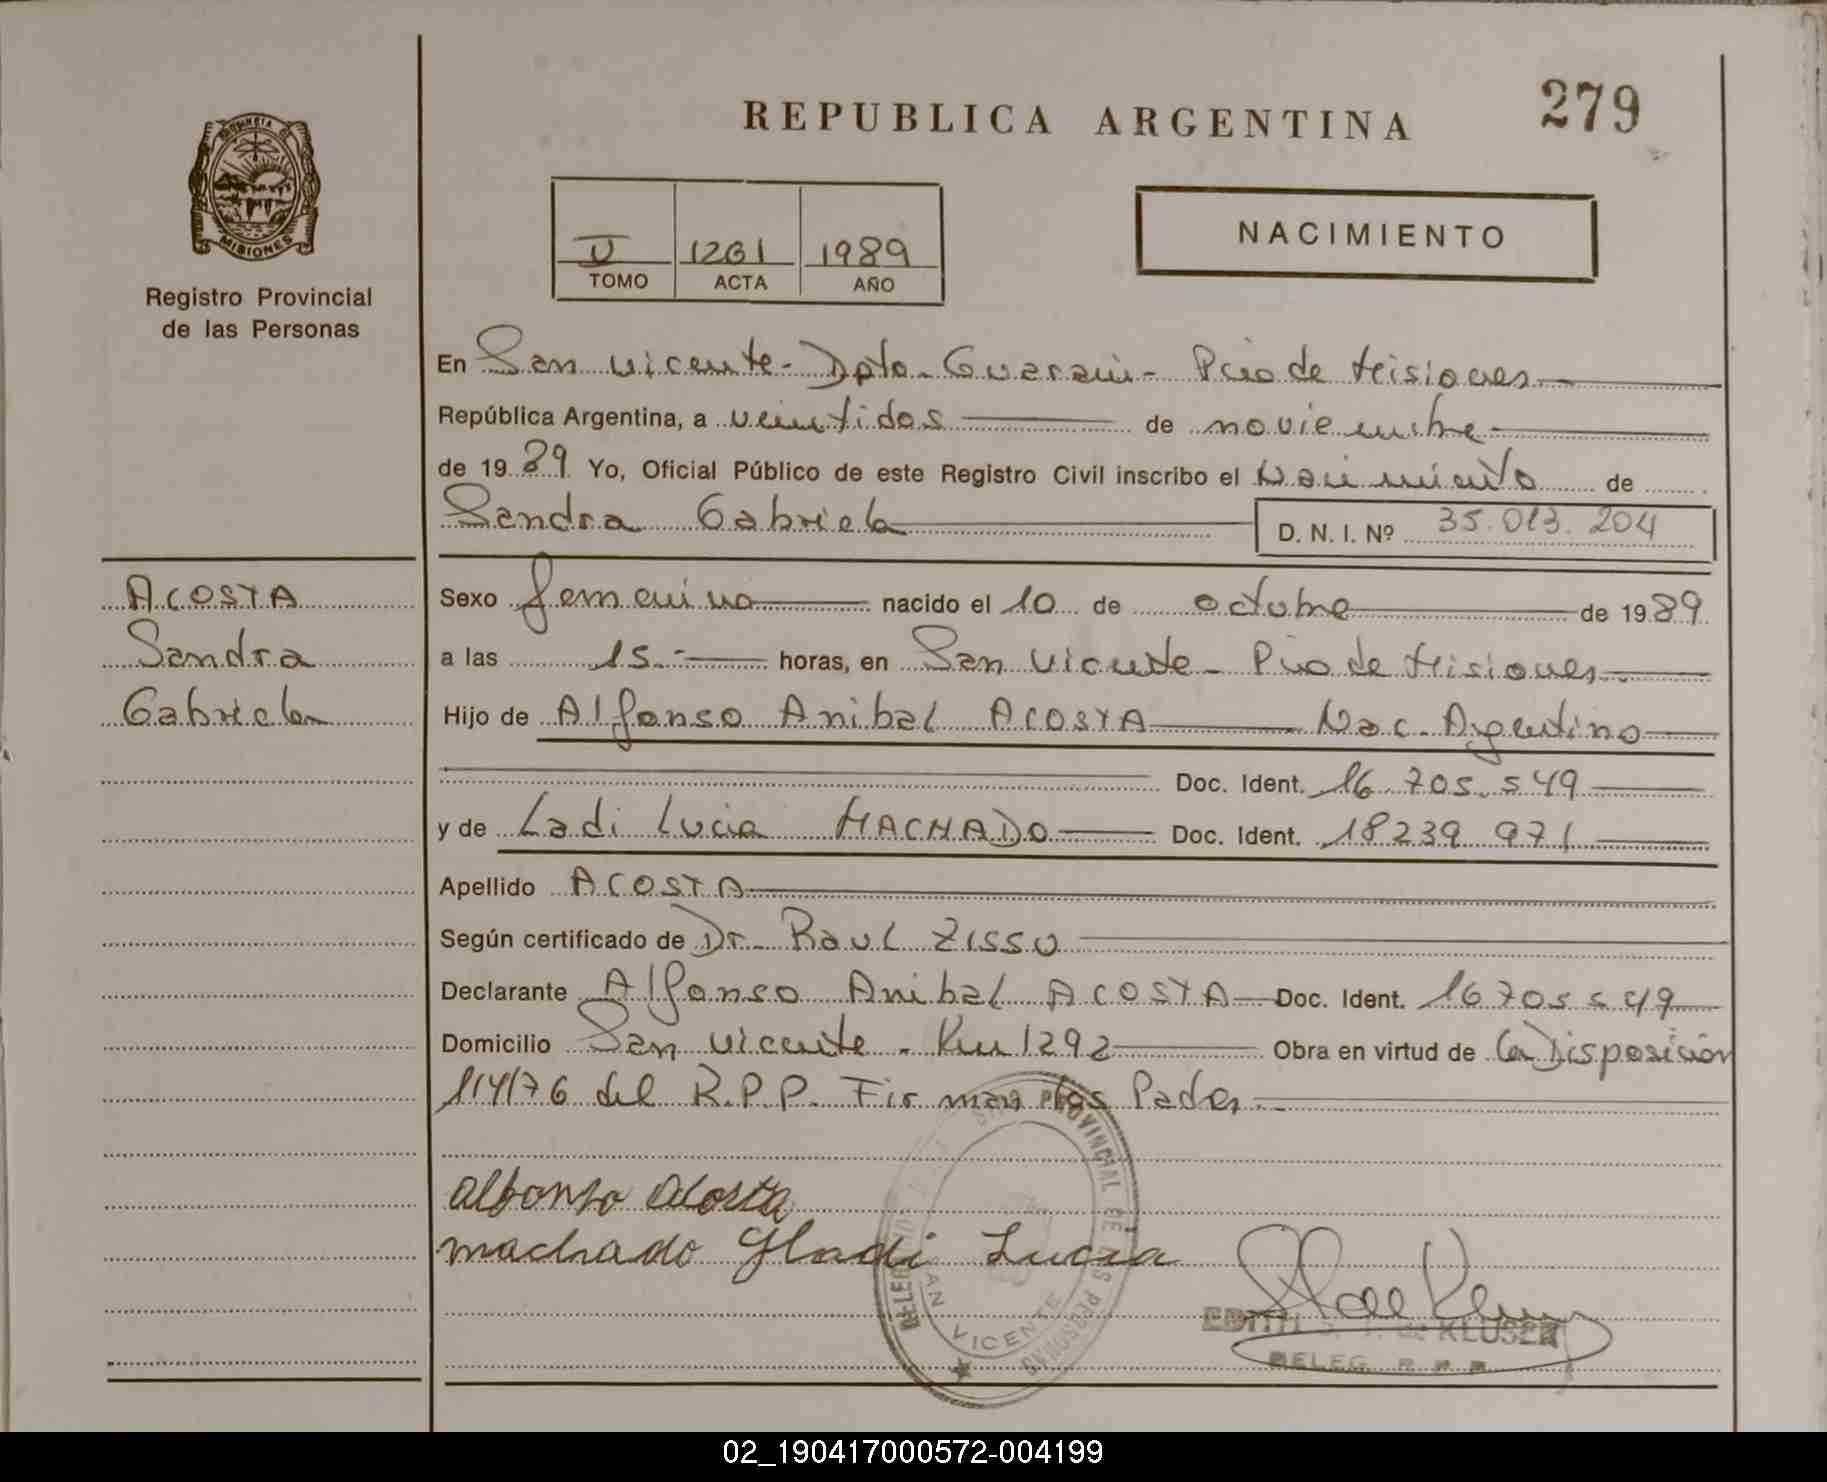 REPUBLICA ARGENTINA
279
PROVINCIA DE
MISIONES
Registro Provincial
de las Personas
V 1261 1989
TOMO ACTA AÑO
NACIMIENTO
En San Vicente - Dpto. Guarani - Pcia de Misiones
República Argentina, a veintidos de noviembre
de 1989 Yo, Oficial Público de este Registro Civil inscribo el Nacimiento de
Sandra Gabriela D. N. I. Nº 35.013.204
ACOSTA
Sandra
Gabriela
Sexo femenino nacido el 10 de octubre de 1989
a las 15.- horas, en San Vicente - Pcia de Misiones
Hijo de Alfonso Anibal ACOSTA Nac. Argentino
Doc. Ident. 16.705.549
y de Ladi Lucia MACHADO Doc. Ident. 18239 971
Apellido ACOSTA
Según certificado de Dr. Raul Zisso
Declarante Alfonso Anibal ACOSTA Doc. Ident. 16705549
Domicilio San Vicente - Km 1292 Obra en virtud de la Disposición
114/76 del R.P.P. Firman los Padres
Alfonso Acosta
machado Gladi Lucia
PROVINCIAL DE LAS PERSONAS
SAN VICENTE
EDITH de KLUSER
DELEG. R.P.P.
02_190417000572-004199